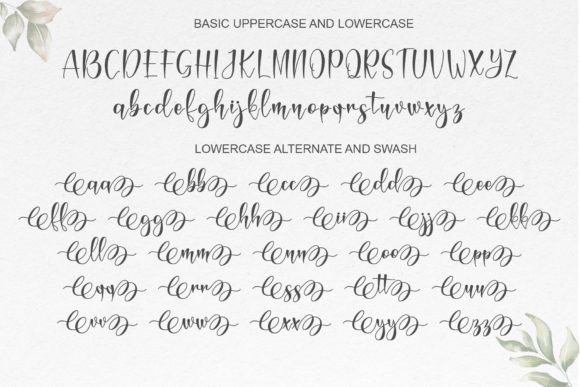 BASIC UPPERCASE AND LOWERCASE
ABCDEFGHIJKLMNOPQRSTUVWXYZ
abcdefghijklmnopqrstuvwxyz
LOWERCASE ALTERNATE AND SWASH
aa bb cc dd ee
ff gg hh ii jj kk
ll mm nn oo pp
qq rr ss tt uu
vv ww xx yy zz